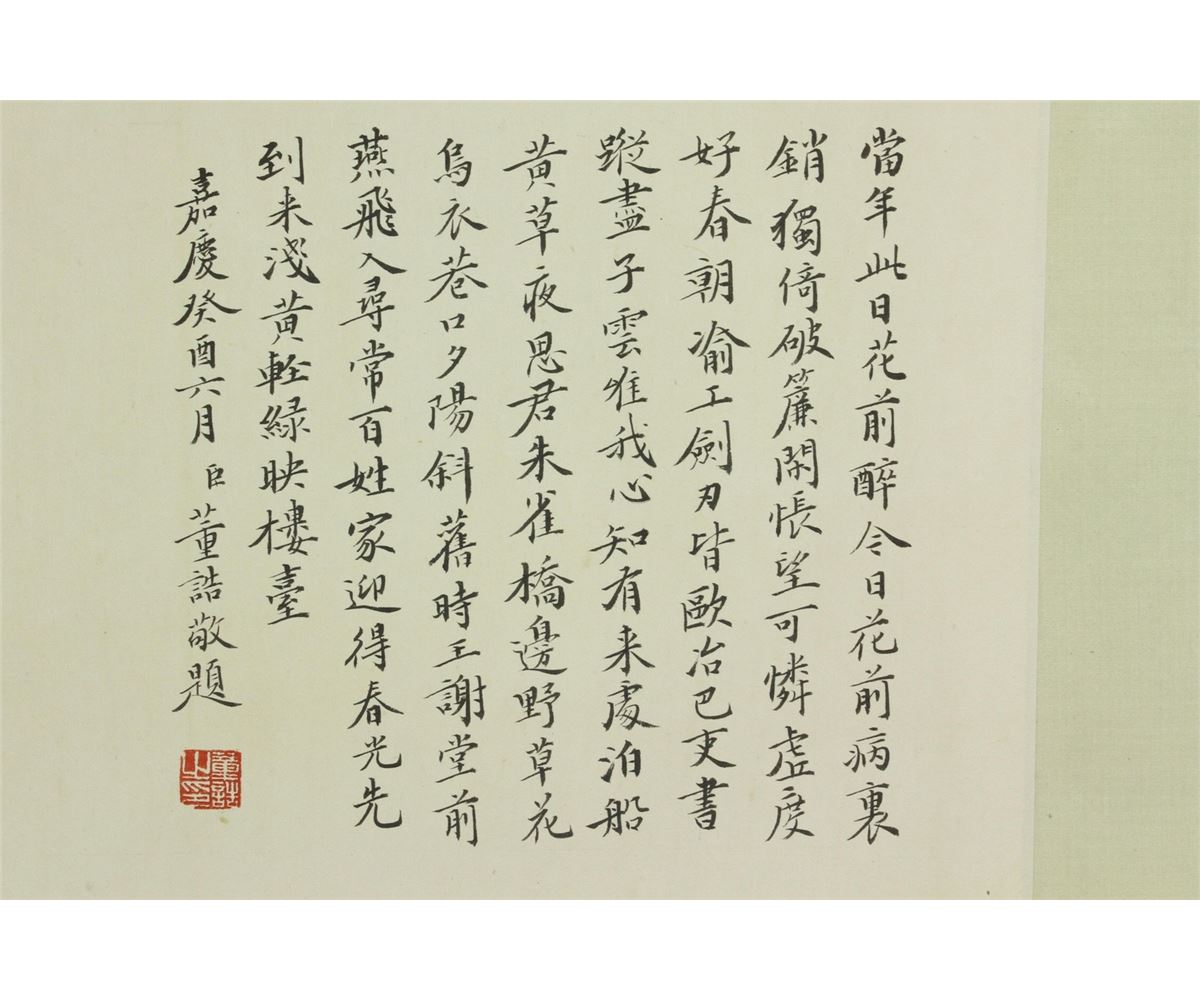 當年此日花前醉今日花前病裏
銷獨倚破簾閑悵望可憐虛度
好春朝渝工劍刃皆歐冶巴吏書
蹤盡子雲唯我心知有来處泊船
黄草夜思君朱雀橋邊野草花
烏衣巷口夕陽斜舊時王謝堂前
燕飛入尋常百姓家迎得春光先
到来淺黄輕緑映樓臺
嘉慶癸酉六月臣董誥敬題
董誥之印